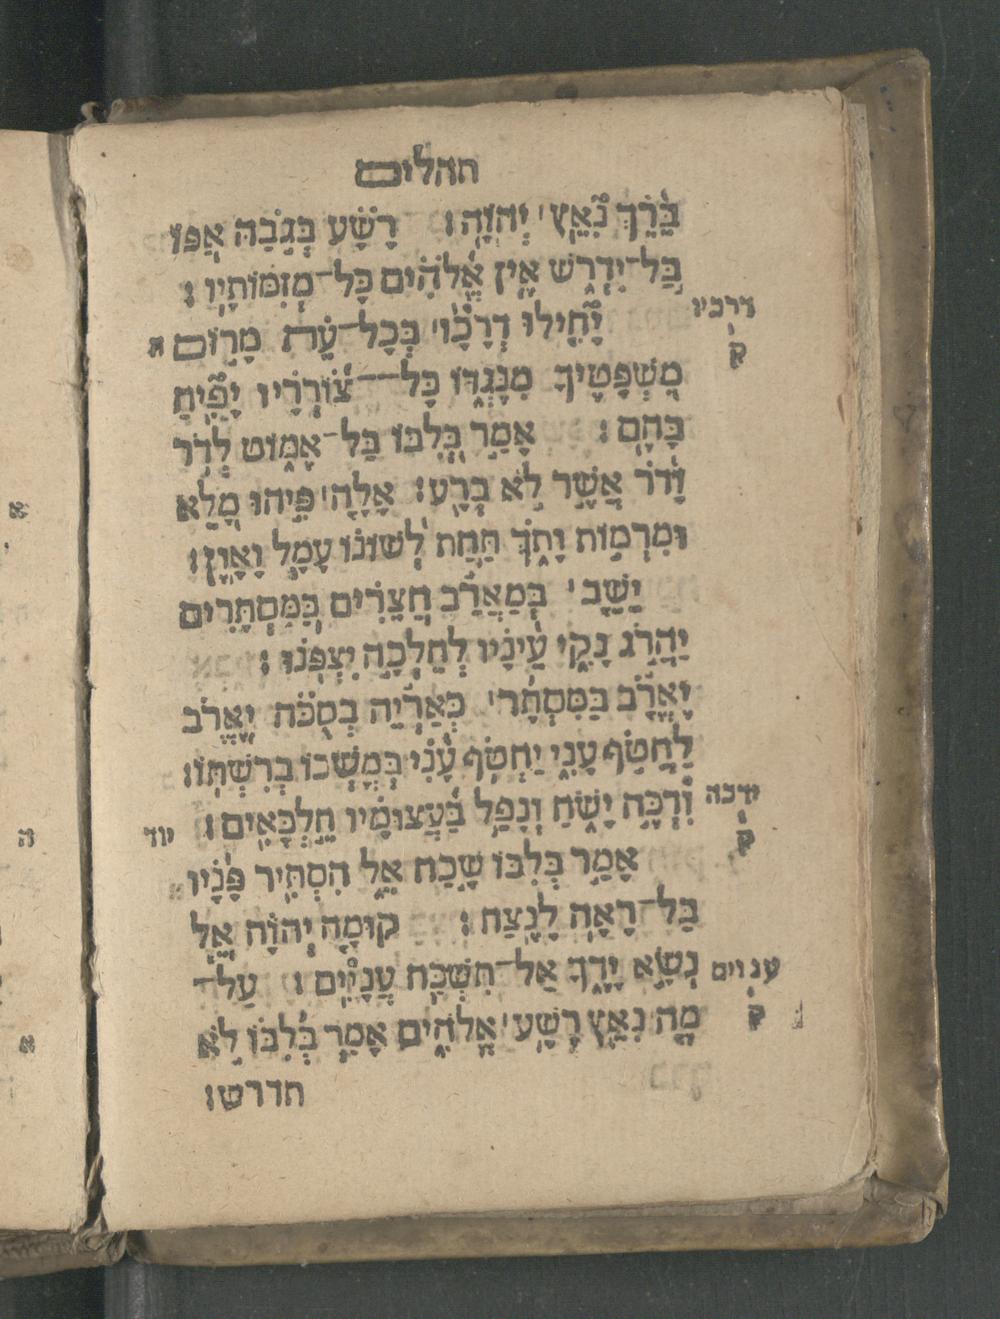 תהלים
בֵּרֵךְ נִאֵץ יְהוָה׃ רָשָׁע כְּגֹבַהּ אַפּוֹ
בַּל־יִדְרֹשׁ אֵין אֱלֹהִים כָּל־מְזִמּוֹתָיו׃
יָחִילוּ דְרָכָו בְּכָל־עֵת מָרוֹם
דרכיו
ק
מִשְׁפָּטֶיךָ מִנֶּגְדּוֹ כָּל־צוֹרְרָיו יָפִיחַ
בָּהֶם׃ אָמַר בְּלִבּוֹ בַּל־אֶמּוֹט לְדֹר
וָדֹר אֲשֶׁר לֹא בְרָע׃ אָלָה פִּיהוּ מָלֵא
וּמִרְמוֹת וָתֹךְ תַּחַת לְשׁוֹנוֹ עָמָל וָאָוֶן׃
יֵשֵׁב בְּמַאֲרַב חֲצֵרִים בַּמִּסְתָּרִים
יַהֲרֹג נָקִי עֵינָיו לְחֵלְכָה יִצְפֹּנוּ׃
יֶאֱרֹב בַּמִּסְתָּר כְּאַרְיֵה בְסֻכֹּה יֶאֱרֹב
לַחֲטוֹף עָנִי יַחְטֹף עָנִי בְּמָשְׁכוֹ בְרִשְׁתּוֹ׃
וְדָכָה יָשֹׁחַ וְנָפַל בַּעֲצוּמָיו חֵלְכָּאִים׃
ידכה
ק
אָמַר בְּלִבּוֹ שָׁכַח אֵל הִסְתִּיר פָּנָיו
בַּל־רָאָה לָנֶצַח׃ קוּמָה יְהוָה אֵל
נְשָׂא יָדֶךָ אַל־תִּשְׁכַּח עֲנָיִים׃ עַל־
ענוים
ק
מֶה נִאֵץ רָשָׁע אֱלֹהִים אָמַר בְּלִבּוֹ לֹא
תדרש׃